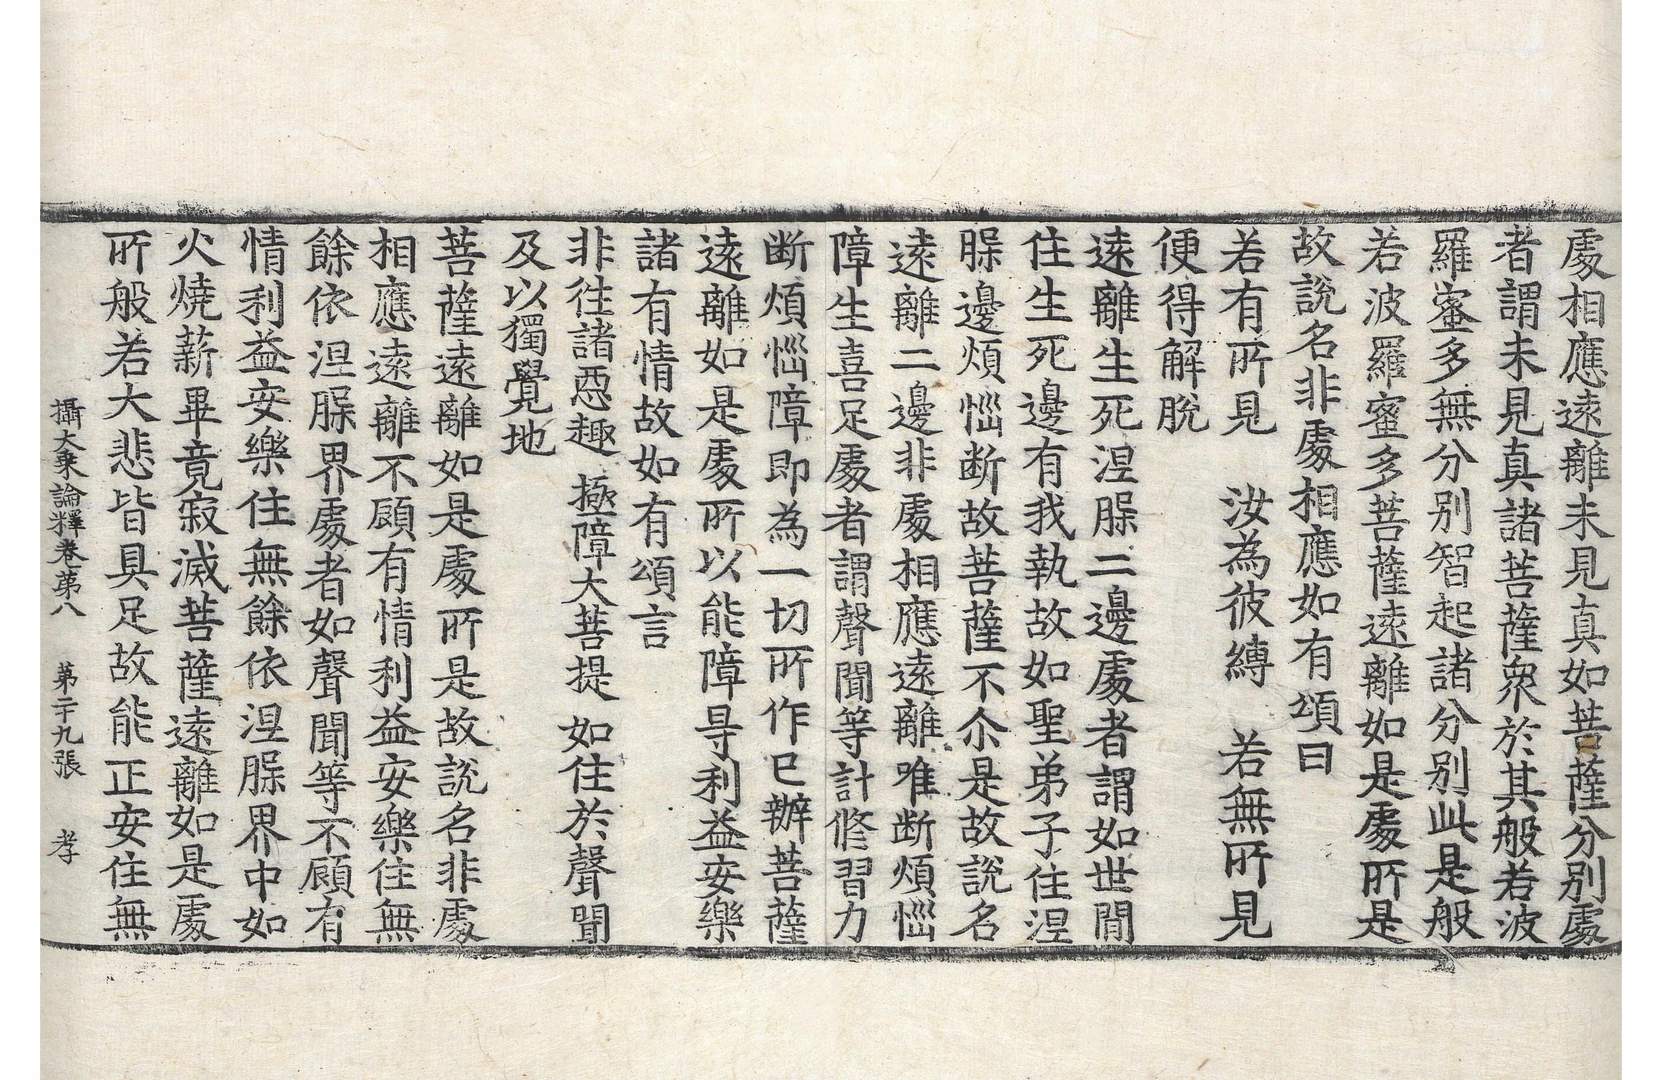 處相應遠離未見真如菩薩分別處
者謂未見真諸菩薩衆於其般若波
羅蜜多無分別智起諸分別此是般
若波羅蜜多菩薩遠離如是處所是
故說名非處相應如有頌曰
若有所見　汝為彼縛　若無所見
便得解脫
遠離生死涅槃二邊處者謂如世間
住生死邊有我執故如聖弟子住涅
槃邊煩惱断故菩薩不尒是故說名
遠離二邊非處相應遠離唯断煩惱
障生喜足處者謂聲聞等計修習力
断煩惱障即為一切所作已辦菩薩
遠離如是處所以能障㝵利益安樂
諸有情故如有頌言
非往諸惡趣　極障大菩提　如住於聲聞
及以獨覺地
菩薩遠離如是處所是故說名非處
相應遠離不顧有情利益安樂住無
餘依涅槃界處者如聲聞等不顧有
情利益安樂住無餘依涅槃界中如
火燒薪畢竟寂滅菩薩遠離如是處
所般若大悲皆具足故能正安住無
攝大乘論釋卷第八　第二十九張　孝